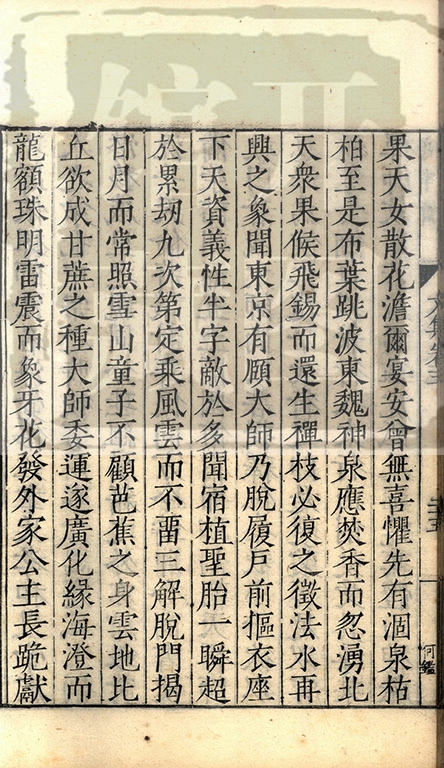 果天女散花澹爾宴安曾無喜懼先有涸泉枯
柏至是布葉跳波東魏神泉應焚香而忽湧北
天衆果候飛錫而還生禪枝必復之徵法水再
興之象聞東京有願大師乃脫履戶前摳衣座
下天資義性半字敵於多聞宿植聖胎一瞬超
於累劫九次第定乘風雲而不畱三解脫門揭
日月而常照雪山童子不顧芭蕉之身雲地比
丘欲成甘蔗之種大師委運遂廣化緣海澄而
龍額珠明雷震而象牙花發外家公主長跪獻